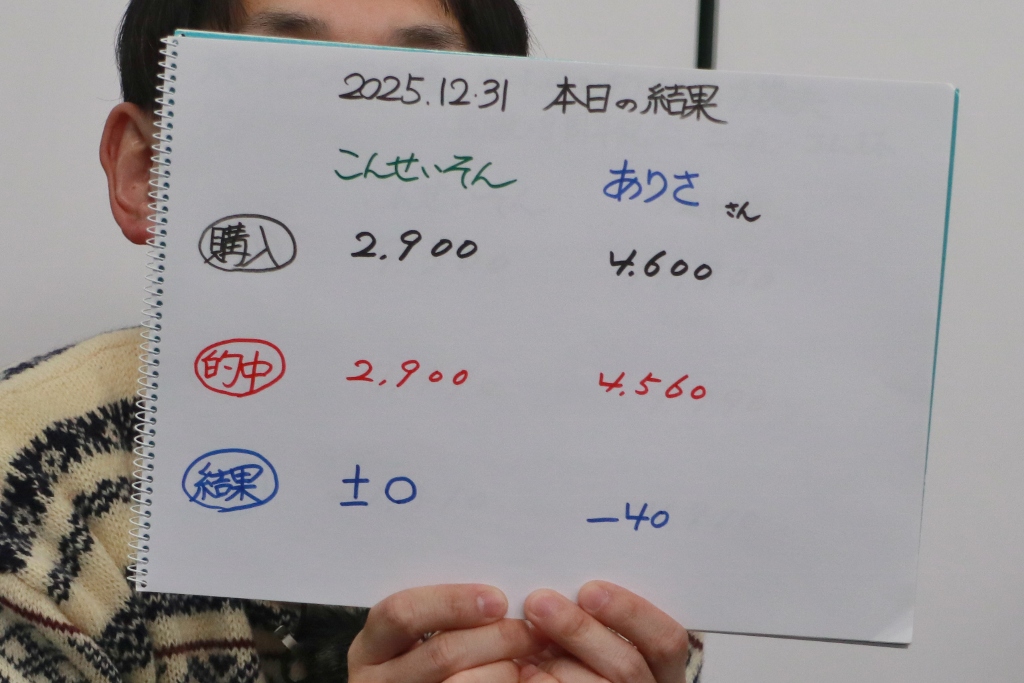 2025.12.31 本日の結果
こんせいそん ありさ さん
購入 2.900 4.600
的中 2,900 4.560
結果 ±0 -40